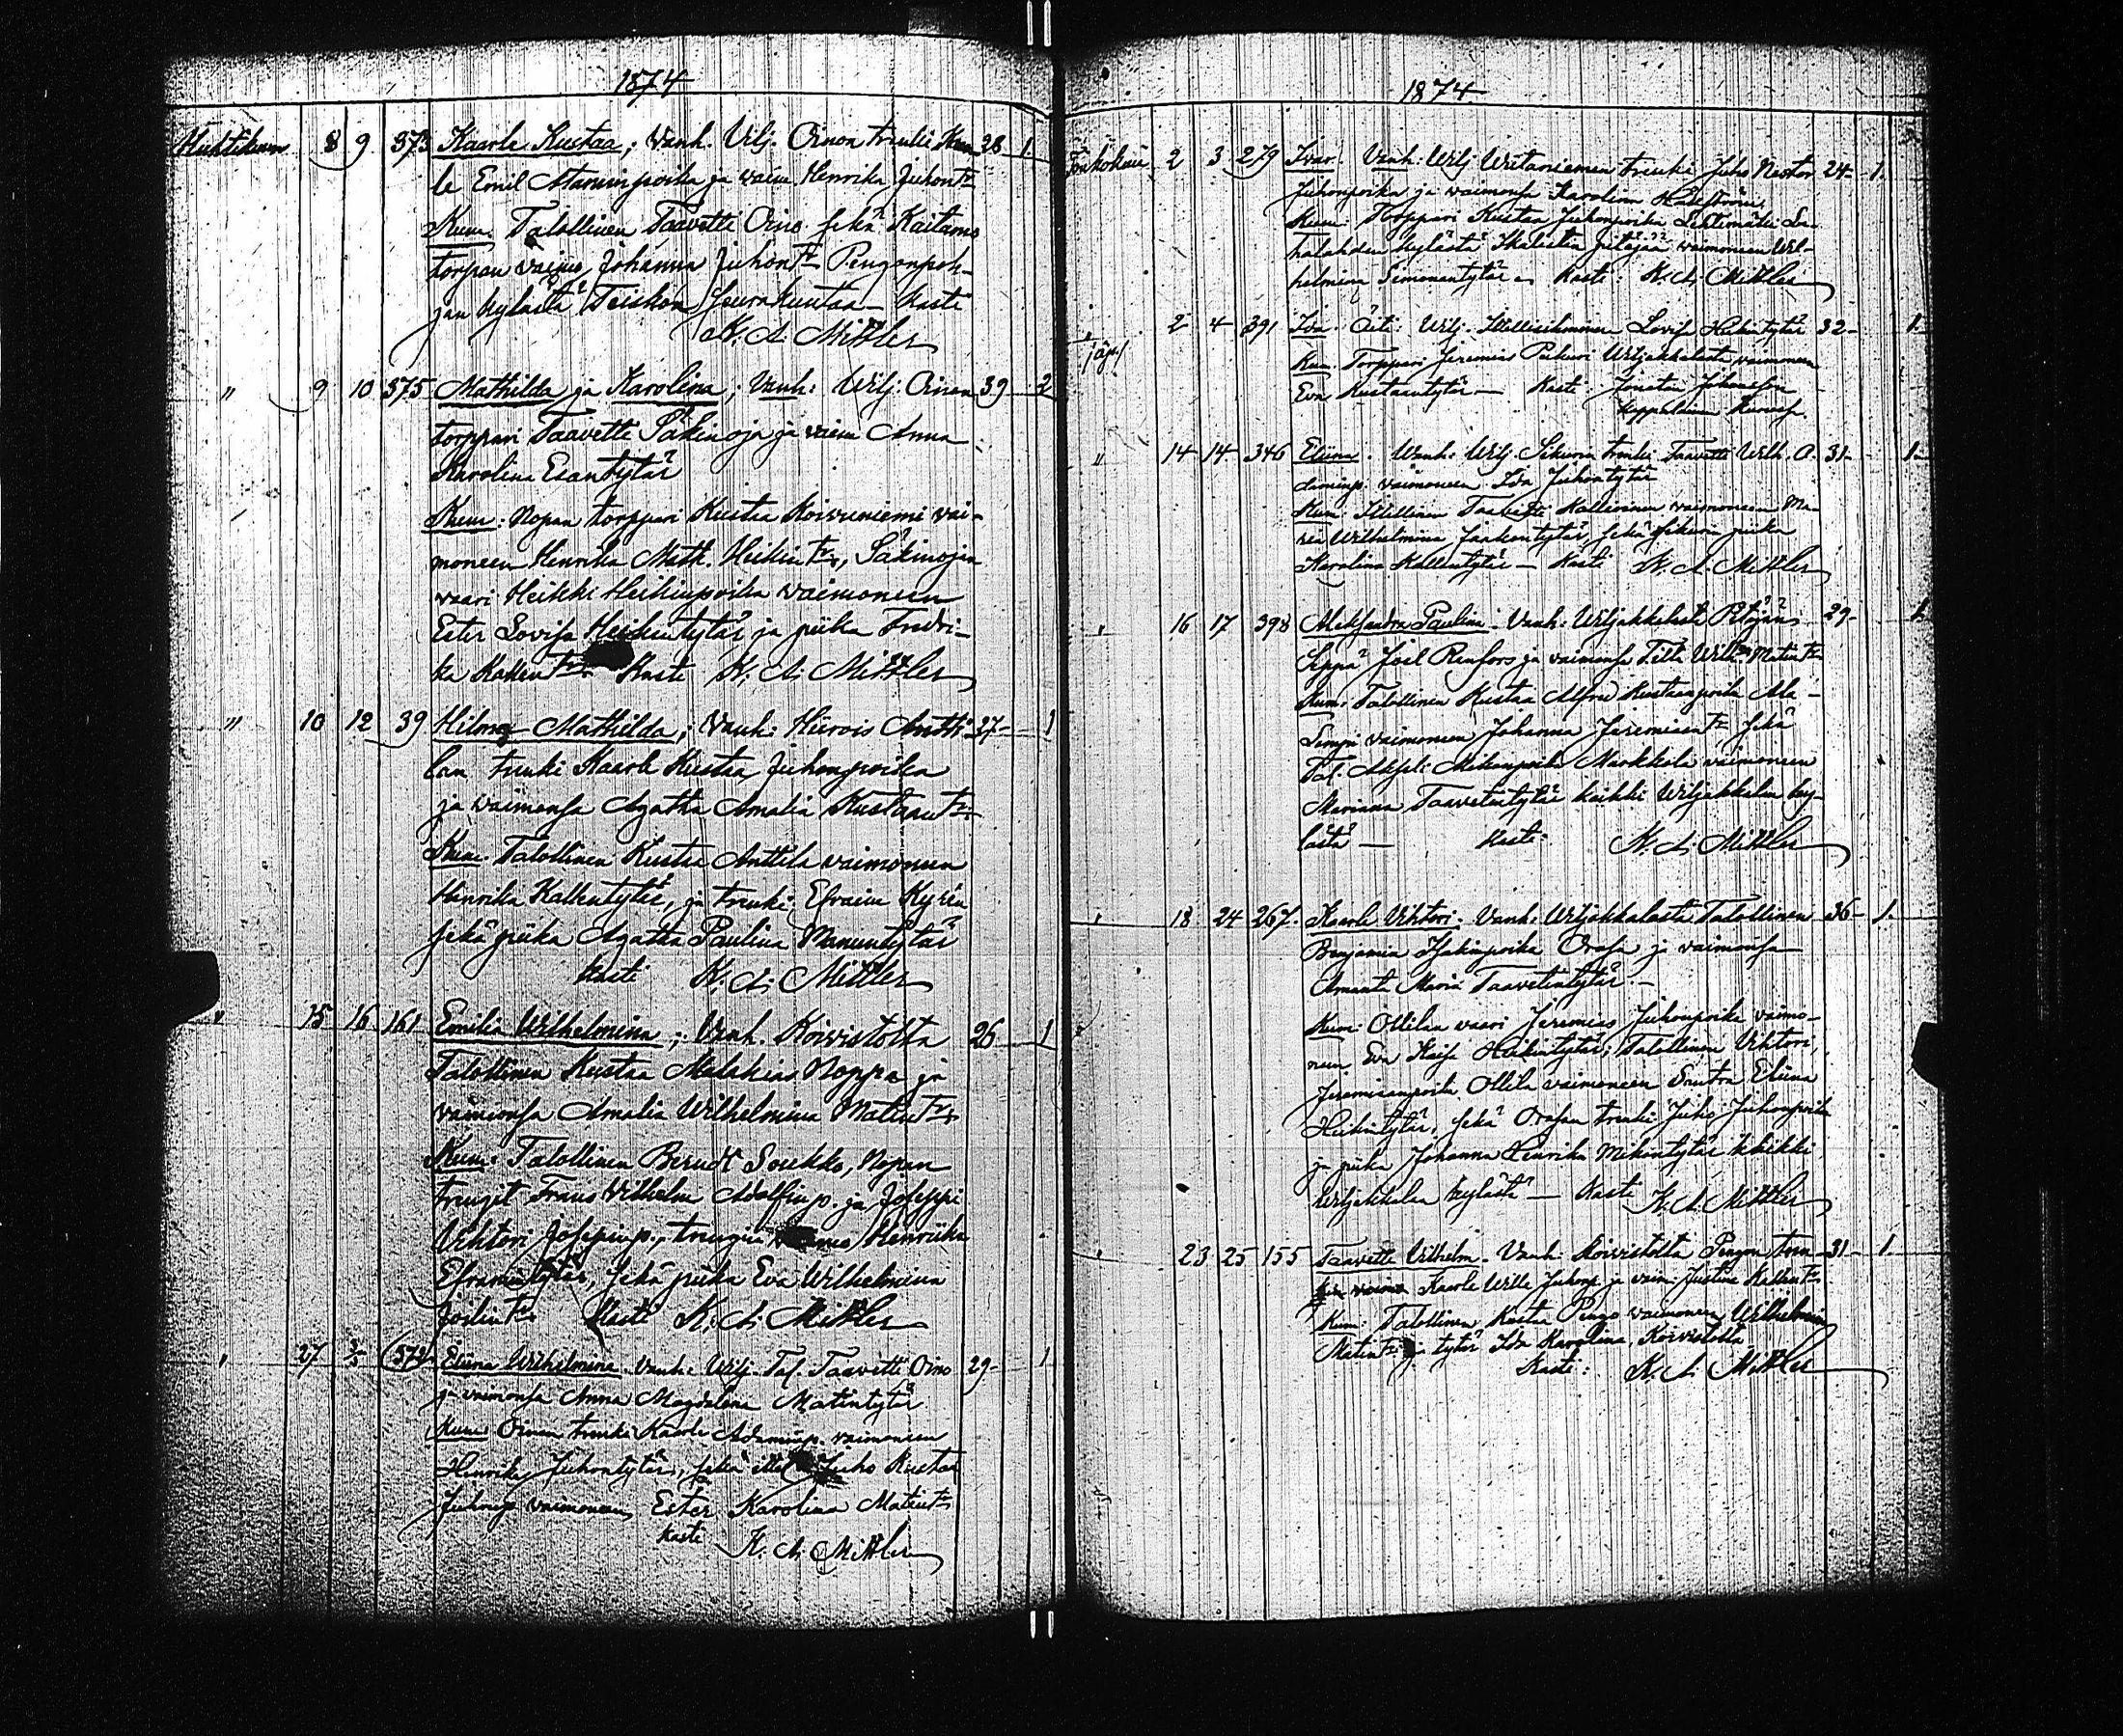 1874
Huhtikuu 8 9 373 Kaarle Kustaa; Vanh. Vilj. Oinon trenki Kaar- 28 1
le Emil Manuinpoika ja vaim. Henrika Juhontr
Kum. Talollinen Taavetti Oino sekä Kaitamo
torpan vaimo Johanna Juhontr Pengonpoh-
jan kylästä Teiskon seurakuntaa — Kasti
K. A. Mittler
" 9 10 375 Mathilda ja Karolina; Vanh: Wilj. Oinon 39 2
torppari Taavetti Säkinoja ja vaim Anna
Karolina Esantytär
Kum: Nopan torppari Kustaa Koivuniemi vai-
moneen Henrika Math. Heikintr, Säkinojan
vaari Heikki Heikinpoika vaimoneen
Ester Lovisa Heikintytär ja piika Fredri-
ka Kallentr Kasti K. A. Mittler
" 10 12 39 Hilma Mathilda; Vanh: Hirvois Antti- 37 1
lan trenki Kaarle Kustaa Juhonpoika
ja vaimonsa Agatha Amalia Kustaantr
Kum. Talollinen Kustaa Anttila vaimoneen
Henrika Kallentytär, ja trenki Efraim Kyrén
sekä piika Agatha Paulina Manuntytär
Kasti K. A. Mittler
" 15 16 161 Emilia Wilhelmina; Vanh. Koivistolta 26 1
Talollinen Kustaa Malakias Noppa ja
vaimonsa Amalia Wilhelmina Matintr
Kum: Talollinen Berndt Soukko, Nopan
trengit Frans Wilhelm Adolfinp. ja Joseppi
Vihtori Josepinp., trengin vaimo Henriika
Efraimintytär, sekä piika Eva Wilhelmina
Joslintr Kasti K. A. Mittler
" 27 2/5 374 Eliina Wilhelmina. Vanh: Wilj. Tal. Taavetti Oino 29 1
ja vaimonsa Anna Magdalena Matintytär
Kum: Oinon trenki Kaarle Adaminp. vaimoneen
Henrika Juhontytär, sekä Juho Kustaa
Juhonp vaimoneen Ester Karolina Matintr
Kasti K. A. Mittler
1874
Toukokuu 2 3 279 Ivar. Vanh: Wilj Wirtaniemen trenki Juho Nestor 24 1.
Juhonpoika ja vaimonsa Karolina
Kum: Torppari Kustaa Juhonpoika Lehtimäki La-
halahden kylästä Ikalisten pitäjää vaimoneen Wil-
helmina Simonantytär. Kasti: K. A. Mittler
" 2 4 391 Ida. Äiti: Wilj. Itellisihminen Lovisa Heikintytär 32 1.
(äp.) Kum. Torppari Jeremias Viljakkalasta vaimoneen
Eva Kustaantytär — Kasti Jonatan Johansson
Kappalainen
" 14 14 346 Eliina. Vanh: Wilj. Sikurin trenki Taavetti Wilh. A- 31 1.
daminp. vaimoneen Ida Juhontytär
Kum. Itellinen Taavetti Kallioinen vaimoneen Ma-
ria Wilhelmina Jaakontytär, sekä Sikurin piika
Karolina Kallentytär — Kasti K. A. Mittler
" 16 17 398 Aleksandra Paulina. Vanh: Wiljakkalasta Pitäjän 29 1.
Seppä Joel Renfors ja vaimonsa Tilta Wilh. Matintr
Kum: Talollinen Kustaa Alfred Kustaanpoika Ala-
Sompi vaimoneen Johanna Jeremiaantr sekä
Tal. Aksel. Mikonpoika Markkola vaimoneen
Mariana Taavetintytär kaikki Wiljakkalan ky-
lästä — Kasti: K. A. Mittler
" 18 24 267. Kaarle Vihtori. Vanh: Wiljakkalasta Talollinen 36 1.
Benjamin Isakinpoika Orasa ja vaimonsa
Amanta Maria Taavetintytär. —
Kum: Ollilan vaari Jeremias Juhonpoika vaimo-
neen Eva Kaisa Heikintytär, Talollinen Vihtori
Jeremiaanpoika Ollila vaimoneen Santra Eliina
Heikintytär, sekä Orasan trenki Juho Juhonpoika
ja piika Johanna Henrika Mikontytär kaikki
Viljakkalan kylästä — Kasti K. A. Mittler
" 23 25 155 Taavetti Vilhelm. Vanh: Koivistolta Pengon torp- 31 1.
Kaarle Wille Juhonp ja vaim. Justina Kallentr
Kum: Talollinen Kustaa Pengo vaimoneen Wilhelmina
Matintr ja tytär Ida Karolina Koivistolta
Kasti: K. A. Mittler